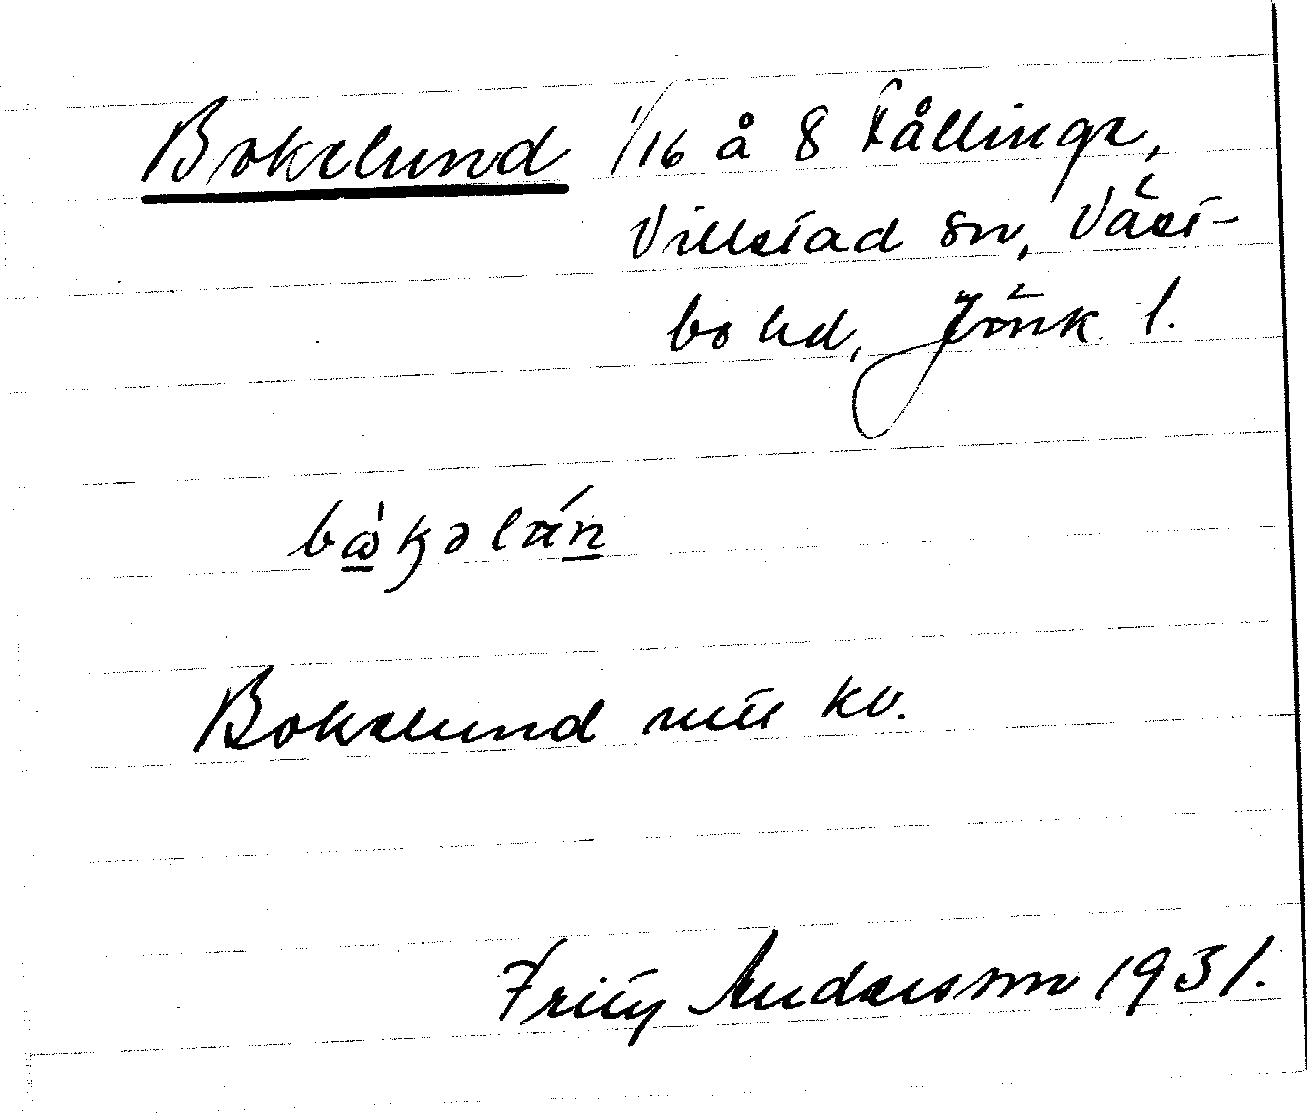 Bokelund 1/16 å 8 Kållinge,
Villstad sn, Väst-
bo hd, Jönk. l.
Bokelund nu kv.
Frity Andersson 1931.